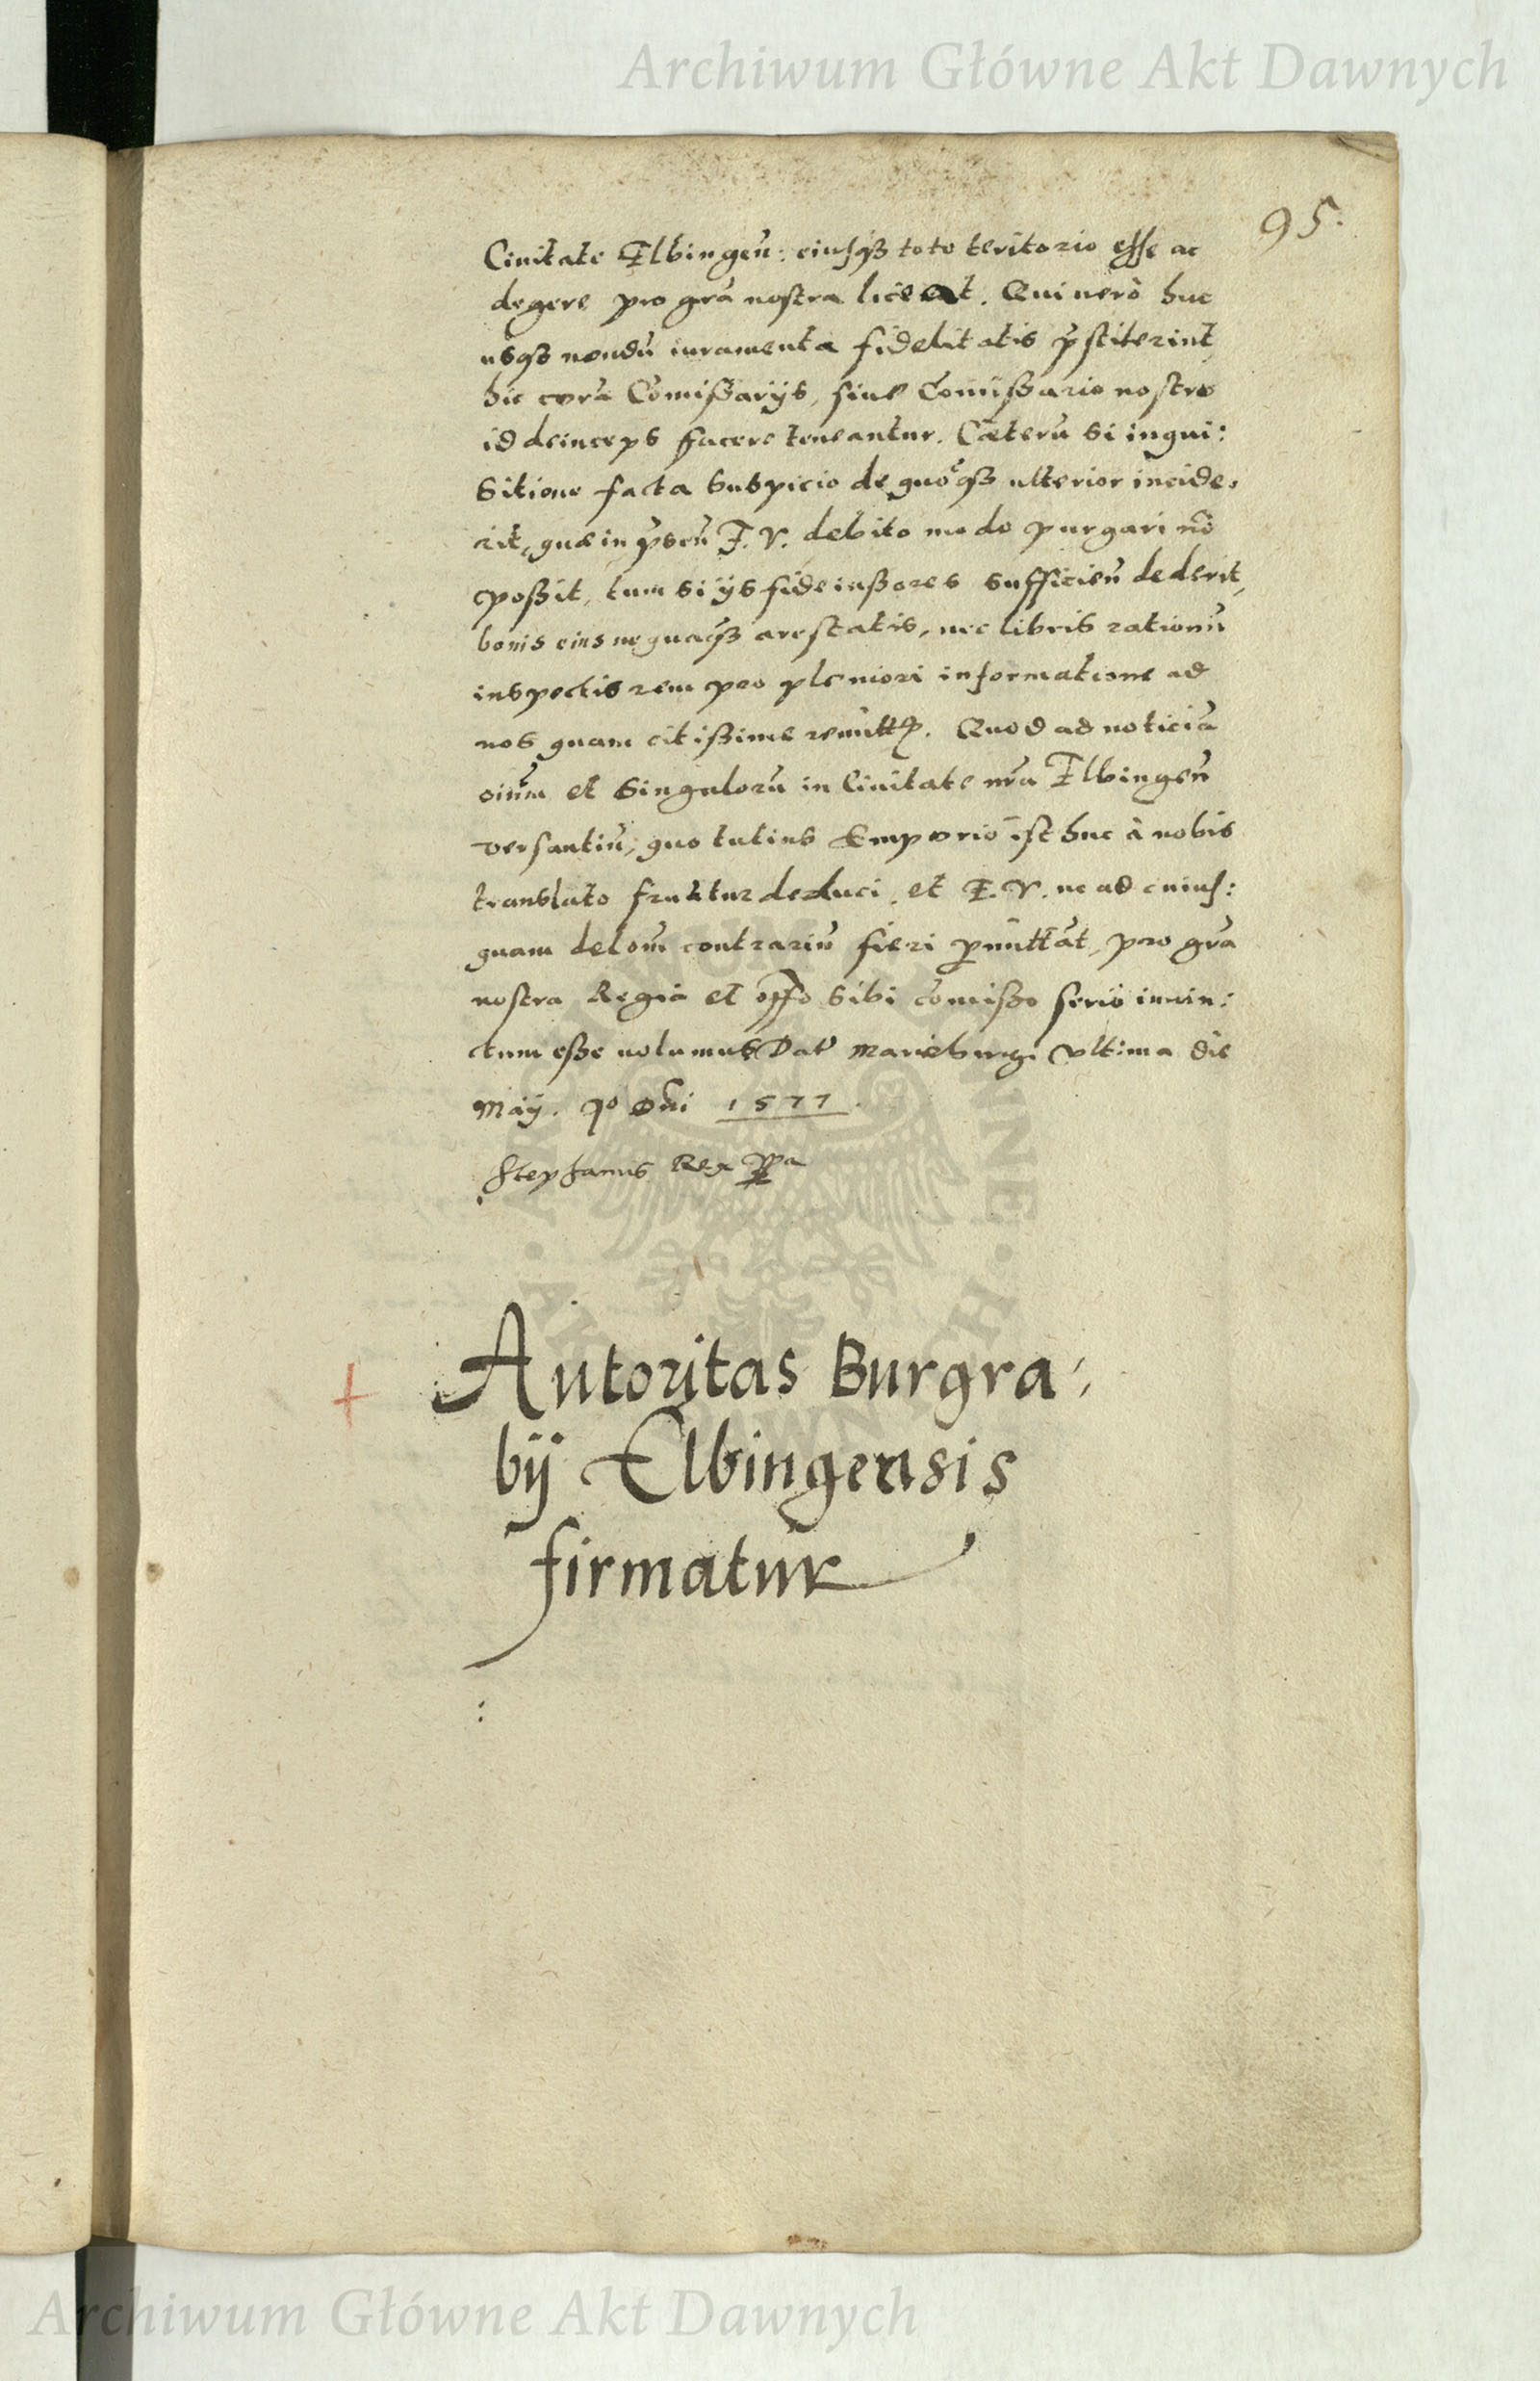 Archiwum Główne Akt Dawnych
95.
Ciuitate Elbingen̄: eiusqꝫ toto teritorio esse ac
degere pro grā nostra liceat. Qui uerò huc
usqꝫ nondū iuramenta fidelitatis p̄stiterint
hic corā Comißarijs, siue Comißario nostro
id deinceps facere teneantur. Cæterū si inqui:
sitione facta suspicio de quoqꝫ ulterior incide,
rit, quæ in p̄sen̄ F. V. debito modo purgari nō
poßit, tum si ijs fideiußores sufficien̄ dederit,
bonis eius nequaqꝫ arestatis, nec libris rationū
inspectis rem pro pleniori informatione ad
nos quam citißime remitt. Quod ad noticiā
oium̄ et singulorū in Ciuitate nrā Elbingen̄
versantiū, quo tutius Emporio isthuc à nobis
translato fruātur deduci, et F. V. ne ad cuius:
quam delom̄ contrariū fieri p̄mittāt, pro grā
nostra Regia et offo sibi comißo seriò iniun:
ctum eße uolumus Dat Marieburgi vltima die
Maij. Ao Dni 1577.
Stephanus Rex
Autoritas Burgra,
bij Elbingensis
firmatur
:
Archiwum Główne Akt Dawnych